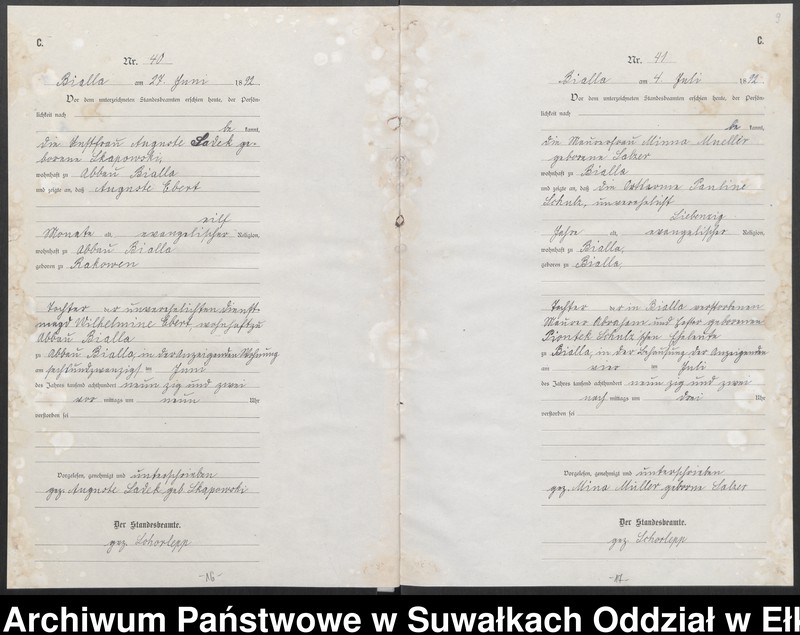 C.
Nr. 40
Bialla am 27. Juni 1892
Vor dem unterzeichneten Standesbeamten erschien heute, der Persön-
lichkeit nach
be kannt,
die Instfrau Auguste Sadek ge-
borene Skapowski,
wohnhaft zu Abbau Bialla
und zeigte an, daß Auguste Ebert
eilf
Monate alt, evangelischer Religion,
wohnhaft zu Abbau Bialla
geboren zu Rakowen
Tochter er unverehelichten Dienst-
magd Wilhelmine Ebert, wohnhaft zu
Abbau Bialla
zu Abbau Bialla, in der Anzeigenden Wohnung
am sechsundzwanzigsten Juni
des Jahres tausend achthundert neunzig und zwei
vor mittags um neun Uhr
verstorben sei
Vorgelesen, genehmigt und unterschrieben
gez. Auguste Sadek geb Skapowski
Der Standesbeamte.
gez. Schorlepp
-16-
9
C.
Nr. 41
Bialla am 4. Juli 1892
Vor dem unterzeichneten Standesbeamten erschien heute, der Persön-
lichkeit nach
be kannt,
die Maurerfrau Minna Mueller
geborene Salzer
wohnhaft zu Bialla
und zeigte an, daß die Ortsarme Pauline
Schulz, unverehelicht
Siebenzig
Jahre alt, evangelischer Religion,
wohnhaft zu Bialla,
geboren zu Bialla,
Tochter er in Bialla verstorbenen
Maurer Abraham und geborenen
Piontek Schulz schen Eheleute
zu Bialla, in der Behausung der Anzeigenden
am vier ten Juli
des Jahres tausend achthundert neunzig und zwei
nach mittags um drei Uhr
verstorben sei
Vorgelesen, genehmigt und unterschrieben
gez. Mina Müller geborne Salzer
Der Standesbeamte.
gez. Schorlepp
-17-
Archiwum Państwowe w Suwałkach Oddział w Ełk